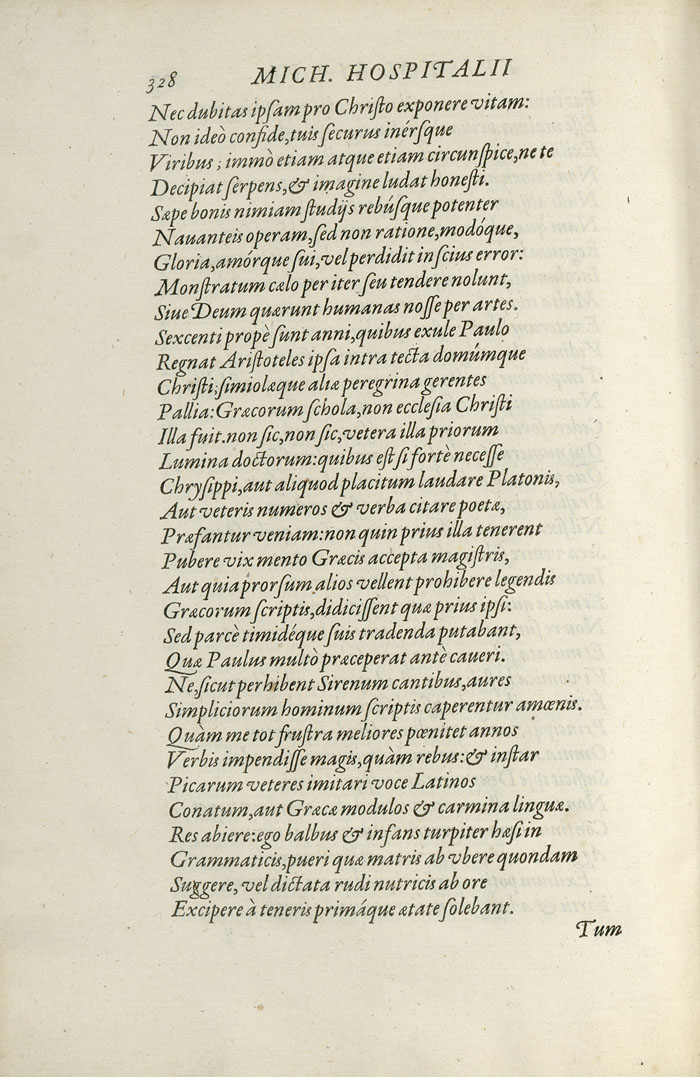 328 MICH. HOSPITALII
Nec dubitas ipſam pro Chriſto exponere vitam:
Non ideò confide, tuis ſecurus inérſque
Viribus; immò etiam atque etiam circunſpice, ne te
Decipiat ſerpens, & imagine ludat honeſti.
Sæpe bonis nimiam ſtudijs rebúſque potenter
Nauanteis operam, ſed non ratione, modóque,
Gloria, amórque ſui, vel perdidit inſcius error:
Monſtratum cælo per iter ſeu tendere nolunt,
Siue Deum quærunt humanas noſſe per artes.
Sexcenti propè ſunt anni, quibus exule Paulo
Regnat Ariſtoteles ipſa intra tecta domúmque
Chriſti; ſimiolæque aliæ peregrina gerentes
Pallia: Græcorum ſchola, non eccleſia Chriſti
Illa fuit. non ſic, non ſic, vetera illa priorum
Lumina doctorum: quibus eſt ſi fortè neceſſe
Chryſippi, aut aliquod placitum laudare Platonis,
Aut veteris numeros & verba citare poetæ,
Præfantur veniam: non quin prius illa tenerent
Pubere vix mento Græcis accepta magiſtris,
Aut quia prorſum alios vellent prohibere legendis
Græcorum ſcriptis, didiciſſent quæ prius ipſi:
Sed parcè timidéque ſuis tradenda putabant,
Quæ Paulus multò præceperat antè caueri.
Ne, ſicut perhibent Sirenum cantibus, aures
Simpliciorum hominum ſcriptis caperentur amœnis.
Quàm me tot fruſtra meliores pœnitet annos
Verbis impendiſſe magis, quàm rebus: & inſtar
Picarum veteres imitari voce Latinos
Conatum, aut Græcæ modulos & carmina linguæ.
Res abiere: ego balbus & infans turpiter hæſi in
Grammaticis, pueri quæ matris ab vbere quondam
Suggere, vel dictata rudi nutricis ab ore
Excipere à teneris primáque ætate ſolebant.
Tum